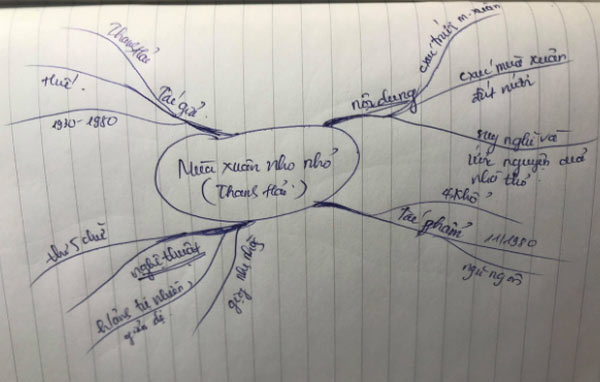 Mùa xuân nho nhỏ
(Thanh Hải)
Tác giả
Thanh Hải
Huế
1930-1980
nội dung
cxúc trước m.xuân
cxúc mùa xuân
đất nước
suy nghĩ và
ước nguyện của
nhà thơ
Tác phẩm
4 khổ
11/1980
ngũ ngôn
nghệ thuật
thơ 5 chữ
h/ảnh tự nhiên,
giản dị
giọng nhẹ nhàng